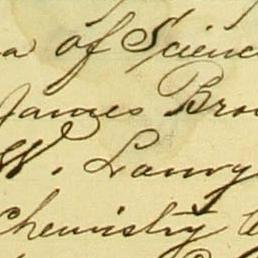 of Scienc
James Bro
W. Lowry
Chemistry